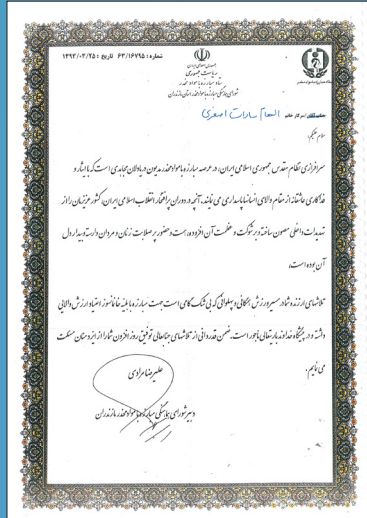 شماره: ۶۳/۱۶۷۹۵ تاریخ: ۱۳۹۳/۰۳/۲۵
ریاست جمهوری
ستاد مبارزه با مواد مخدر
شورای هماهنگی مبارزه با مواد مخدر استان مازندران
سرکار خانم الهام سادات اصغری
سلام علیکم؛
سرافرازی نظام مقدس جمهوری اسلامی ایران، در عرصه مبارزه با مواد مخدر مدیون دریادلان مجاهدی است که با ایثار و
فداکاری عاشقانه از مقام والای انسانها پاسداری می نمایند. آنچه در دوران پرافتخار انقلاب اسلامی ایران، کشور عزیزمان را از
تهدیدات داخلی مصون ساخته و بر شوکت و عظمت آن افزوده، همت و حضور پرصلابت زنان و مردان وارسته و بیدار دل
آن بوده است.
تلاشهای ارزنده شما در مسیر ورزش همگانی و پهلوانی که بی شک گامی است جهت مبارزه با بلیه خانمانسوز اعتیاد ارزش والایی
داشته و در پیشگاه خداوند باریتعالی ماجور است. ضمن قدردانی از تلاشهای جنابعالی توفیق روز افزون شما را از ایزد منان مسئلت
می نمایم.
علیرضا مرادی
دبیر شورای هماهنگی مبارزه با مواد مخدر مازندران